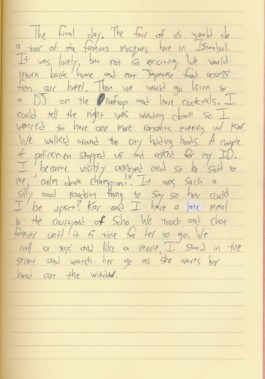 The final day. The four of us would do
a tour of the famous mosques here in Istanbul.
It was lovely, but not so exciting. We would
return back home and eat Japanese food across
from our hotel. Then we would go listen to
a DJ on the rooftop and have cocktails. I
could tell the night was winding down so I
wanted to have one more romantic evening w/ Kar.
We walked around the city holding hands. A couple
of policemen stopped us and asked for my ID.
I became visibly and so he said to
me, "calm down champion". It was such a
silly and random thing to say so how could
I be upset? Kar and I have a late meal
in the courtyard of Soho. We touch and chat
forever until it is time for her to go. We
call a taxi and like a movie, I stand in the
street and watch her go as she waves her
hand out the window.